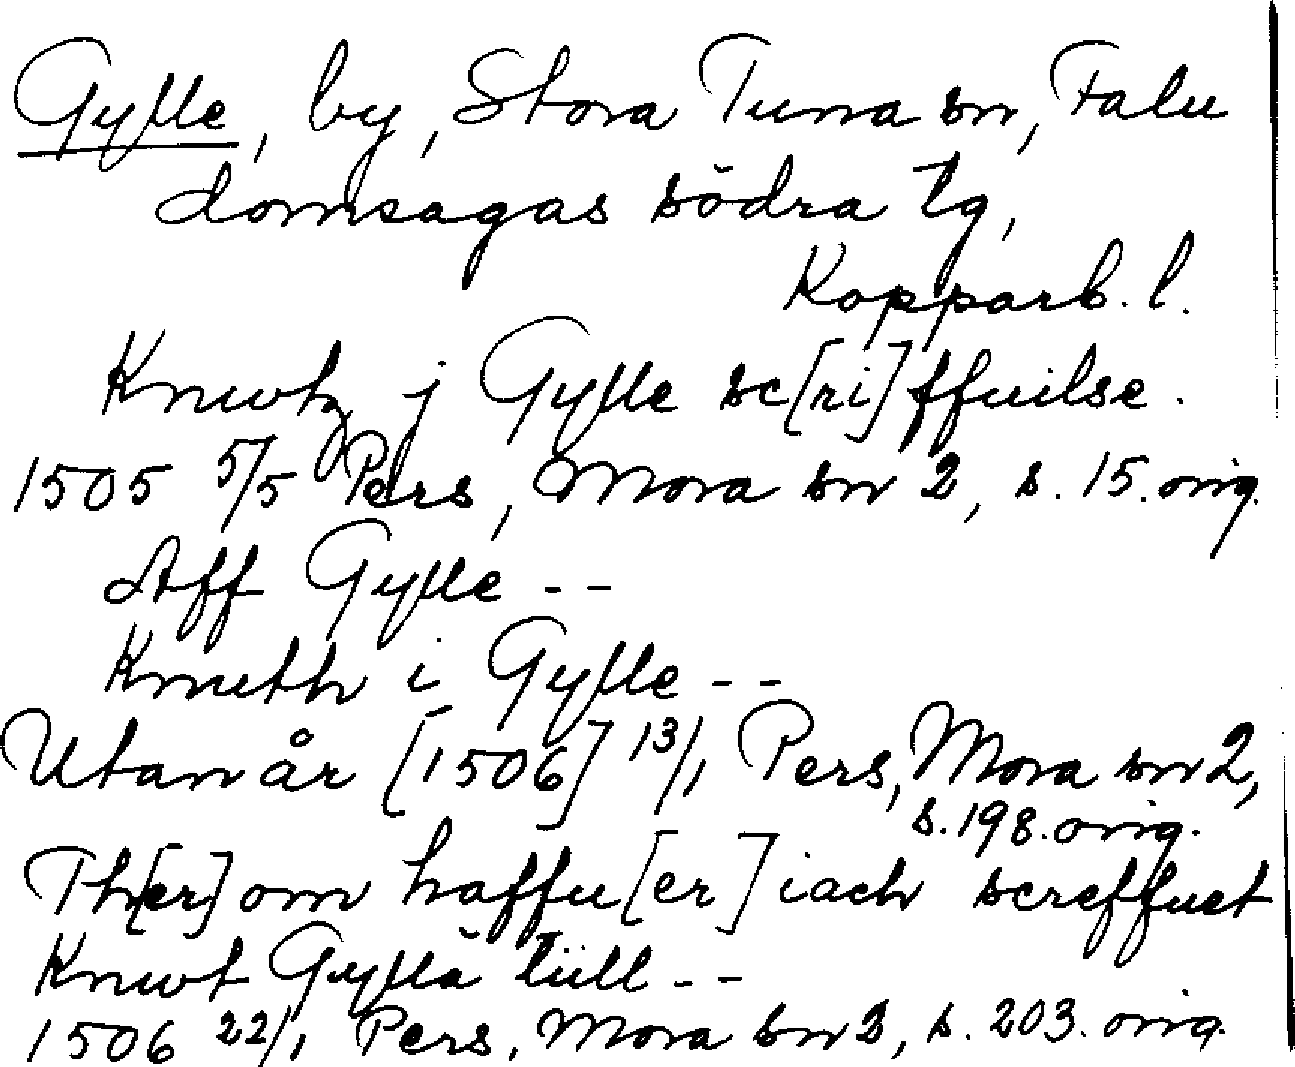 Gylle, by, Stora Tuna sn, Falu
domsagas södra tg,
Kopparb. l.
Knwtz j Gylle sc[ri]ffuilse.
1505 5/5 Pers, Mora sn 2, s. 15. orig.
Aff Gylle --
Knuth i Gylle --
Utan år [1506] 13/1 Pers, Mora sn 2,
s. 198. orig.
Th[er] om haffu[er] iach screffuet
Knwt Gyllä tiill --
1506 22/1 Pers, Mora sn 2, s. 203. orig.